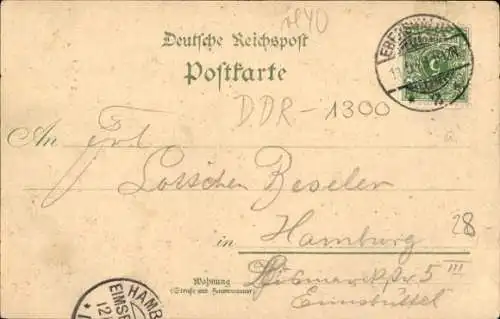 H40
Deutsche Reichspost
Postkarte
EBERSWALDE
DDR-1300
An Frl.
Lottchen Beseler
in Hamburg
28
Wohnung
(Straße und Hausnummer)
Bismarckstr 5 III
Eimsbüttel
HAMB
EIMSB
12